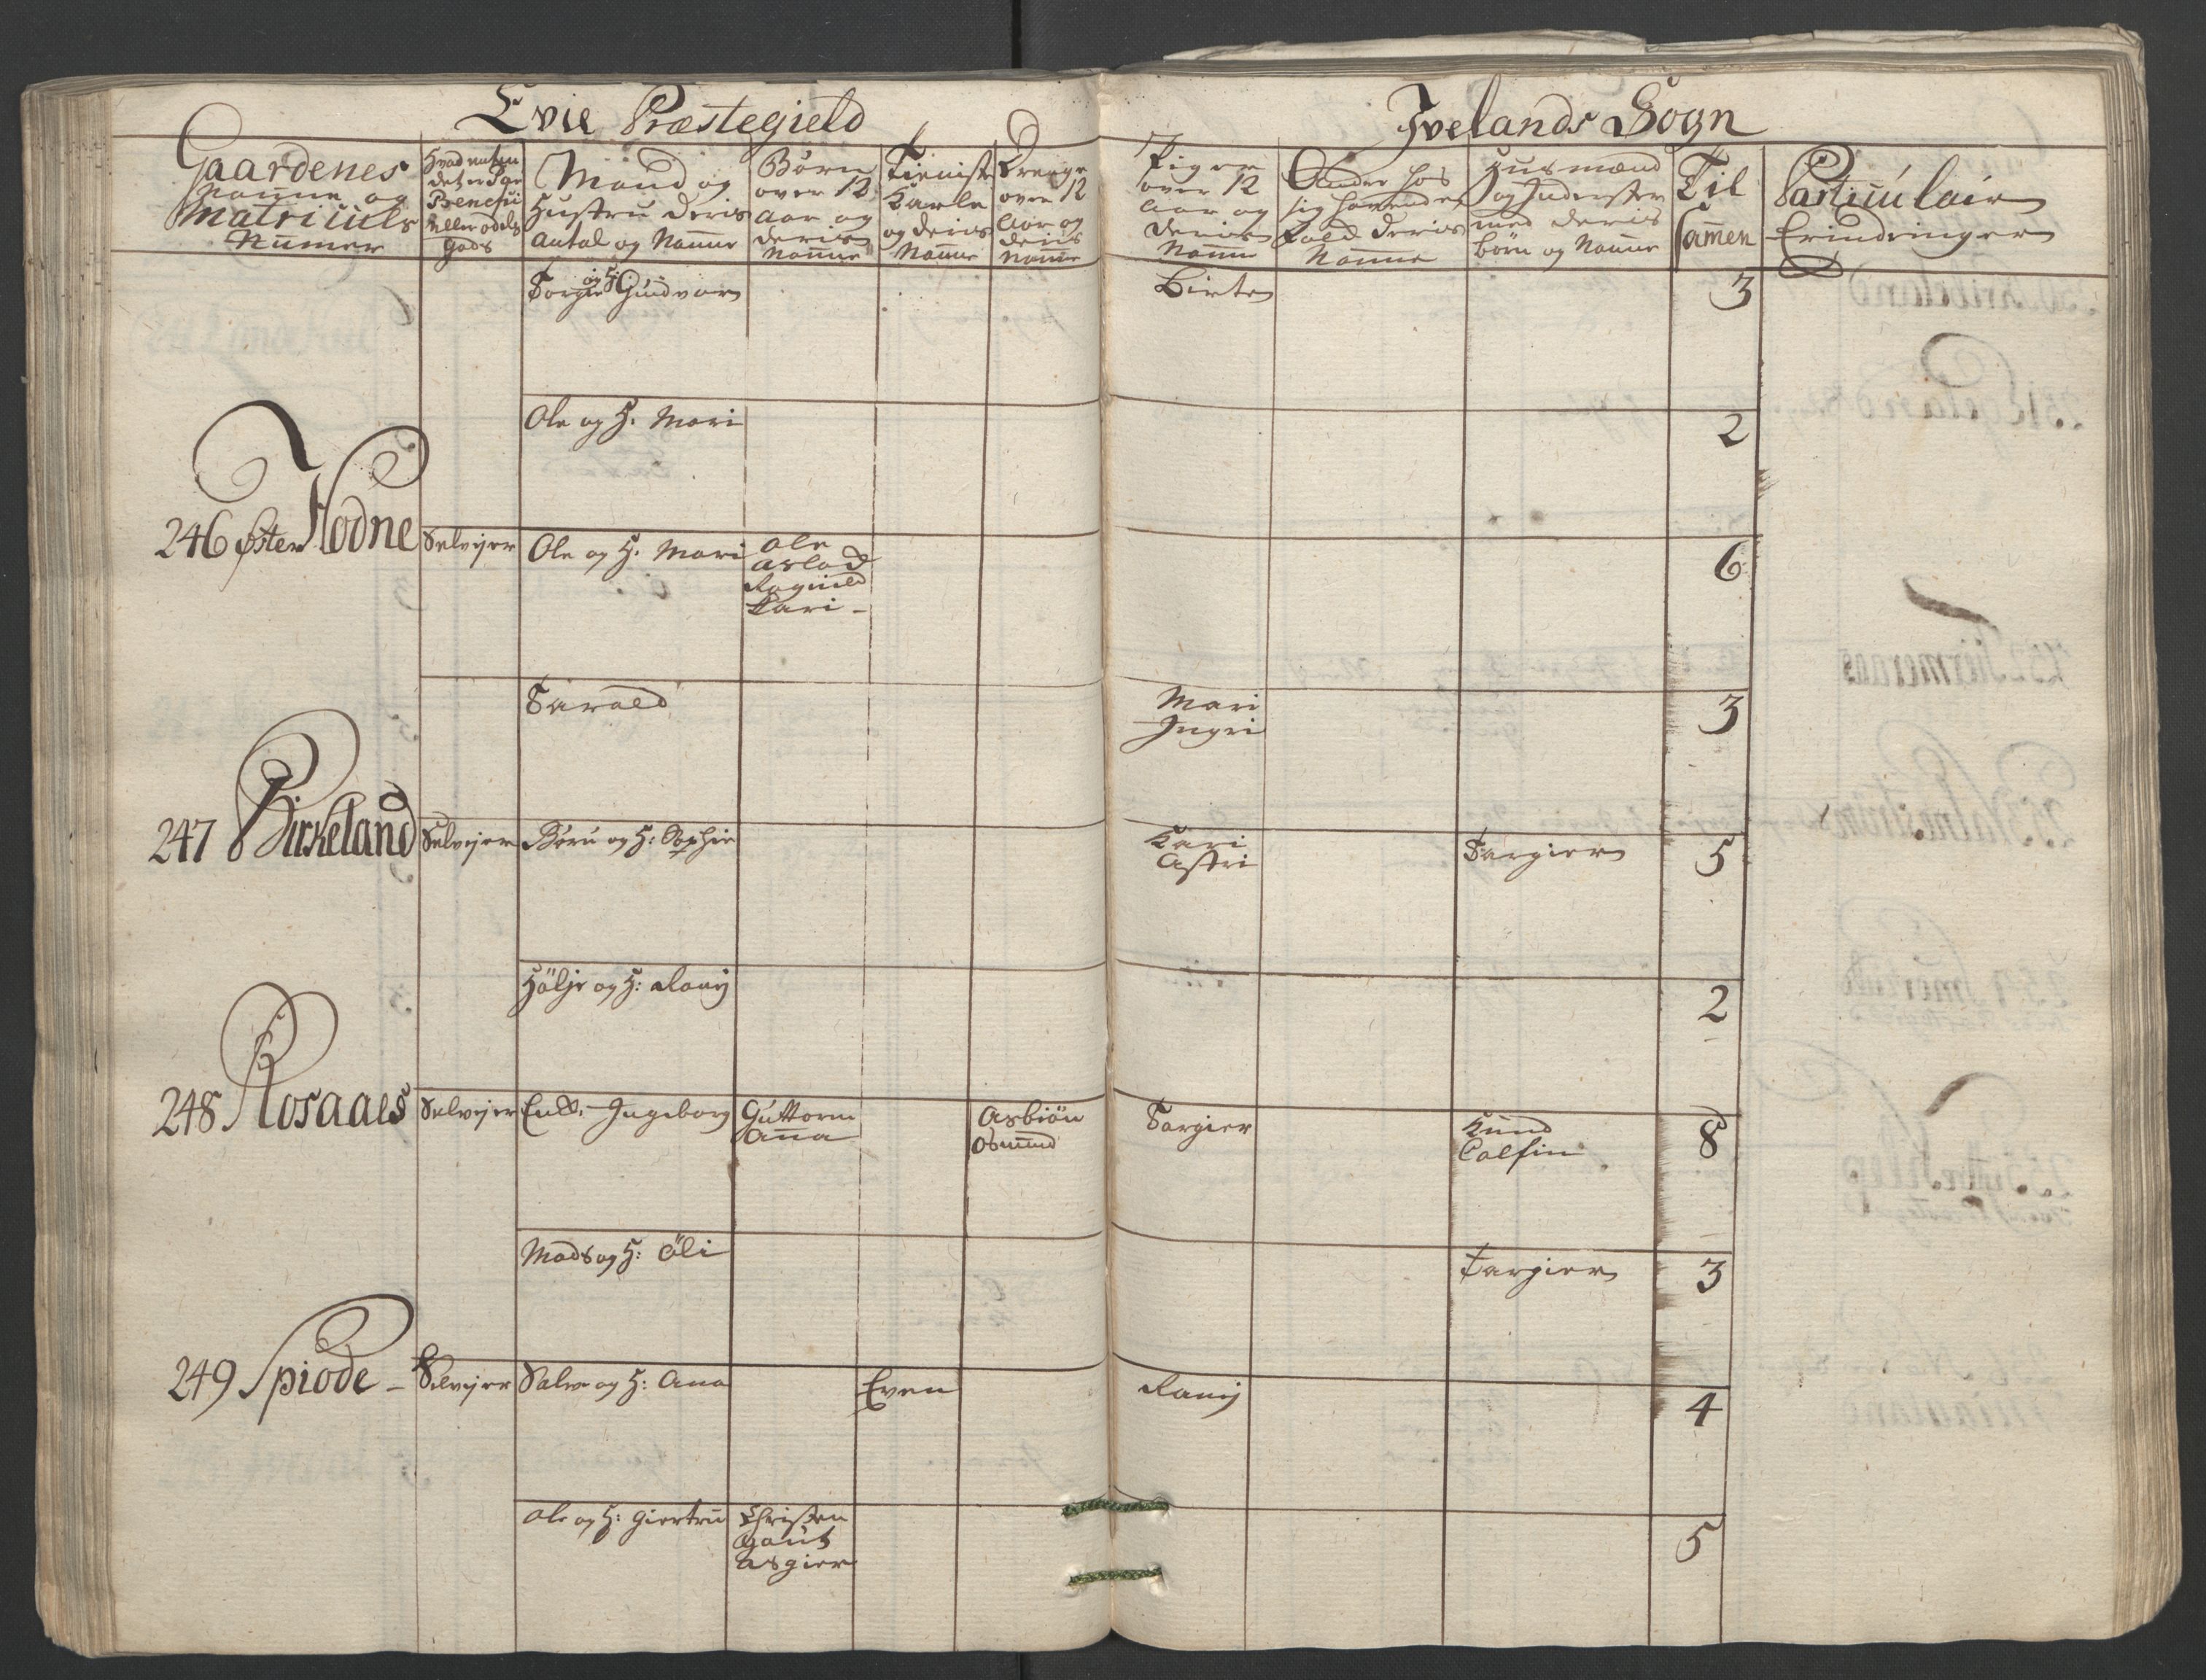 Evie Præstegield
Ivelands Sogn
Gaardenes
Nafne og
Matriculs
Numer
Hvad enten
det er
Benefi
Eller odels
Gods
Mand og
Hustru Deris
Antal og Nafne
Børn
over 12
Aar og
Deris
Nafne
Tieniste
Karle
og Deris
Nafne
Drenge
over 12
Aar og
Deris
Nafne
Piger
over 12
Aar og
Deris
Nafne
Andre hos
sig havende
Folk Deris
Nafne
Husmænd
og Inderster
med Deris
børn og Nafne
Til
samen
Particulair
Erindringer
Torgier og H: Gundvor Birte 3
Ole og H. Mari 2
246 Øster Hodne Selvejer Ole og H. Mari Ole 6
Aslod
Ragnild
Kari -
Tarald Mari 3
Ingri
247 Birkeland Selvejer Børu og H: Sophie Kari Targier 5
Astri
Hölje og H: Ranij 2
248 Rosaaes Selvejer Enk: Ingeborg Guttorm Asbiön Targier Knud 8
Anna Osmund Colfin
Mads og H: Öli Targier 3
249 Spiode - Selvejer Salve og H: Ana Even Ranij 4
Ole og H: Giertru Christen 5
Gaut
Asgier